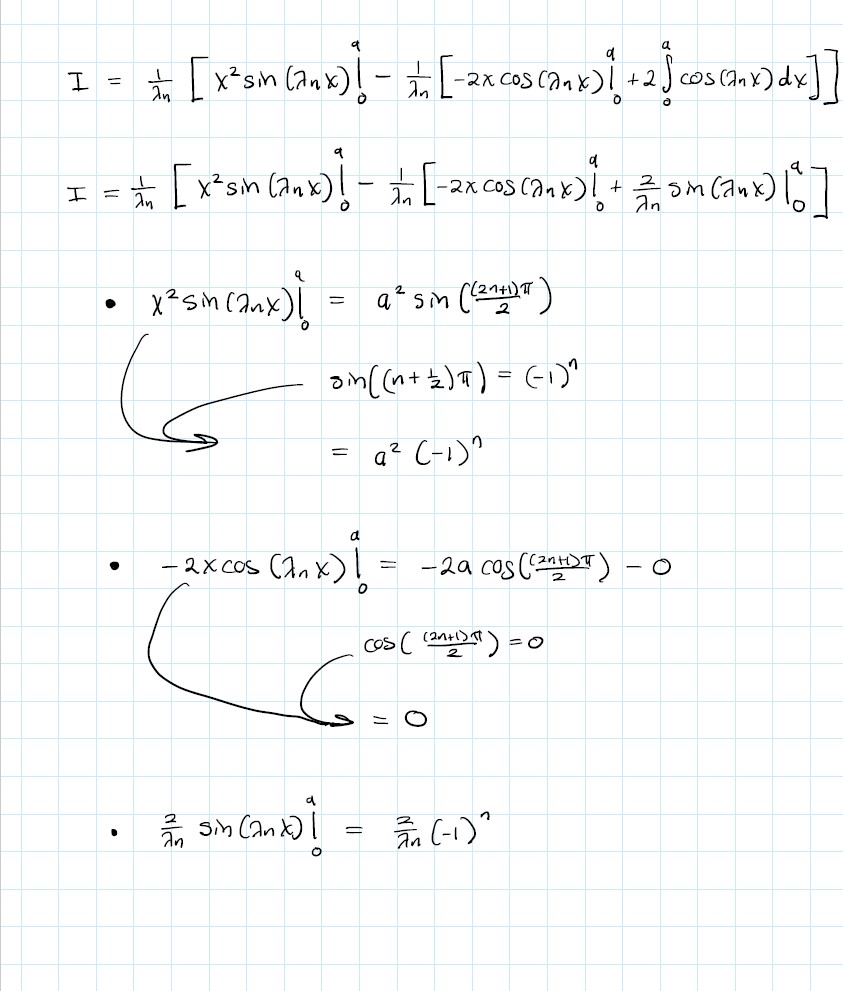 I = 1/λn [ x² sin(λn x) |₀ᵃ − 1/λn [ −2x cos(λn x) |₀ᵃ + 2 ∫₀ᵃ cos(λn x) dx ] ]
I = 1/λn [ x² sin(λn x) |₀ᵃ − 1/λn [ −2x cos(λn x) |₀ᵃ + 2/λn sin(λn x) |₀ᵃ ]
• x² sin(λn x) |₀ᵃ = a² sin( (2n+1)π / 2 )
sin((n + 1/2)π) = (−1)ⁿ
= a² (−1)ⁿ
• −2x cos(λn x) |₀ᵃ = −2a cos( (2n+1)π / 2 ) − 0
cos( (2n+1)π / 2 ) = 0
= 0
• 2/λn sin(λn x) |₀ᵃ = 2/λn (−1)ⁿ